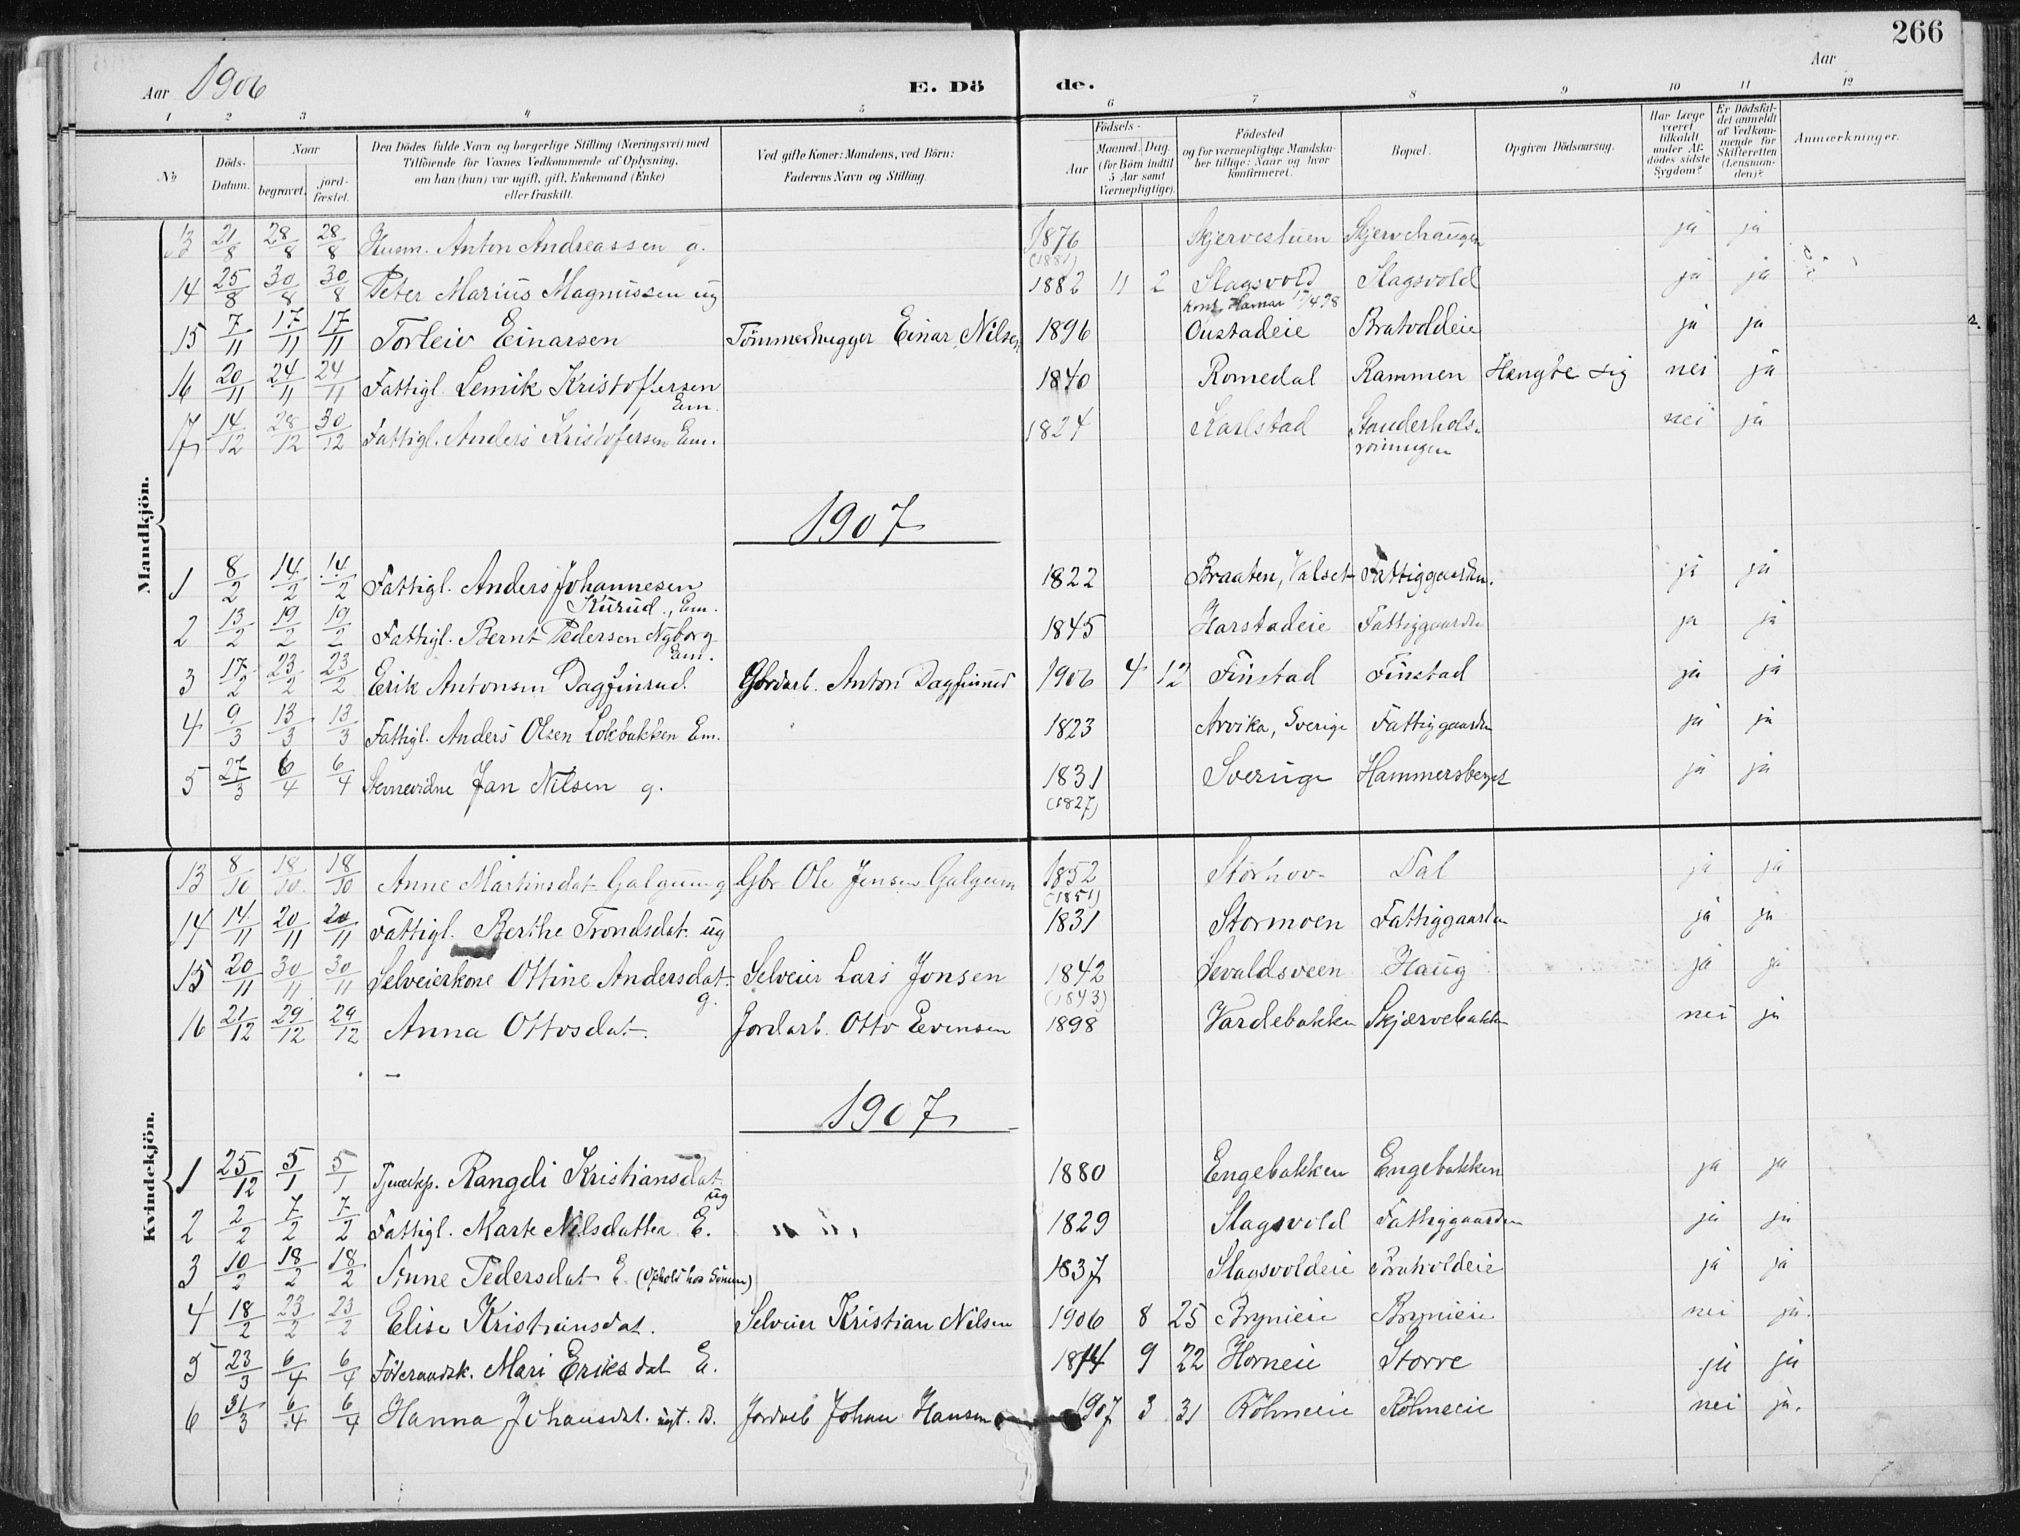 266
Aar 1906 E. Dö de. Aar
1 2 3 4 5 6 7 8 9 10 11 12
No. Döds-Datum. Naar begravet. jord-fæstet. Den Dödes fulde Navn og borgerlige Stilling (Næringsvei) med Tilföiende for Voxnes Vedkommende af Oplysning, om han (hun) var ugift, gift, Enkemand (Enke) eller fraskilt. Ved gifte Koner: Mandens, ved Börn: Faderens Navn og Stilling. Födsels- Aar Maaned. Dag. (for Börn indtil 5 Aar samt Værnepligtige). Födested og for værnepligtige Mandska-ber tillige: Naar og hvor konfirmeret. Bopæl. Opgiven Dödsaarsag. Har Læge været tilkaldt under Af-dödes sidste Sygdom? Er Dödsfal-det anmeldt af Vedkom-mende for Skifteretten (Lensman-den)? Anmærkninger.
Mandkjön.
13 21/8 28/8 28/8 Husm. Anton Andreassen g. 1876 Skjervestuen Skjervehaugen ja ja
(1881)
14 25/8 30/8 30/8 Peter Marius Magnussen ug 1882 11 2 Slagsvold Slagsvold ja ja
konf. Hamar 17/4 98
15 7/11 17/11 17/11 Torleiv Einarsen Tömmerhugger Einar Nilsen 1896 Oustadeie Bratvoldeie ja ja
16 20/11 24/11 24/11 Fattigl. Lemik Kristoffersen 1840 Romedal Rammen Hængte sig nei ja
Em.
17 14/12 28/12 30/12 Fattigl. Anders Kristofersen Em. 1824 Karlstad Stenderhols- nei ja
röinningen
1907
1 8/2 14/2 14/2 Fattigl. Anders Johannesen 1822 Braaten, Valset Fattiggaarden. ja ja
Kurud., Em.
2 13/2 19/2 19/2 Fattigl. Bernt Pedersen Nyborg 1845 Harstadeie Fattiggaarden ja ja
Em.
3 17/2 23/2 23/2 Erik Antonsen Dagfinrud. Gbrdarb. Anton Dagfinrud 1906 4 12 Finstad Finstad ja ja
4 9/3 13/3 13/3 Fattigl. Anders Olsen Lokbakken Em. 1823 Arvika, Sverige Fattiggaarden ja ja
5 27/3 6/4 6/4 Jan Nilsen g. 1831 Sverige Hammersberget ja ja
(1827)
Kvindekjön.
13 8/10 18/10 18/10 Anne Martinsdat. Galgum g Gbr. Ole Jensen Galgum 1852 Storhov Dal ja ja
(1851)
14 14/11 20/11 20/11 Fattigl. Berthe Trondsdat. ug 1831 Stormoen Fattiggaarden ja ja
15 20/11 30/11 30/11 Selveierkone Ottine Andersdat. Selveier Lars Jonsen 1842 Sevaldsveen Haug ja ja
g. (1843)
16 21/12 29/12 29/12 Anna Ottosdat. Jordarb. Otto Evensen 1898 Vardebakken Skjærvebakken nei ja
1907
1 25/12 5/1 5/1 Tjenestep. Rangdi Kristiansdat. 1880 Engebakken Engebakken ja ja
ug
2 2/2 7/2 7/2 Fattigl. Marte Nilsdatter E. 1829 Slagsvold Fattiggaarden ja ja
3 10/2 18/2 18/2 Anne Pedersdat E. (Ophold hos Sönnen) 1837 Slagsvoldeie Bratvoldeie ja ja
4 18/2 23/2 23/2 Elise Kristiansdat. Selveier Kristian Nilsen 1906 8 25 Brynieie Brynieie nei ja.
5 23/3 6/4 6/4 Föderaadsk. Mari Eriksdat E. 1814 9 22 Horneie Storre ja ja
6 31/3 6/4 6/4 Hanna Johansdat. ugt. B. Jordarb Johan Hansen 1907 3 31 Röhneeie Röhneeie nei ja.